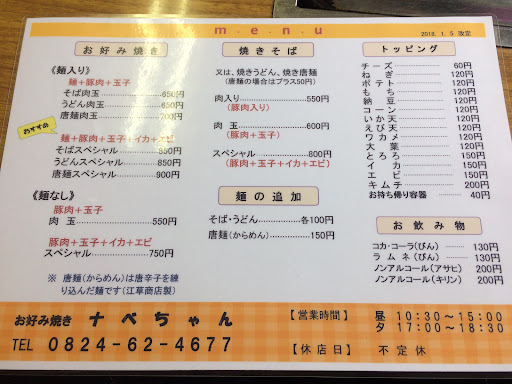 menu
2018. 1. 5 改定
お好み焼き
《麺入り》
麺＋豚肉＋玉子
そば肉玉 650円
うどん肉玉 650円
唐麺肉玉 700円
おすすめ
麺＋豚肉＋玉子＋イカ＋エビ
そばスペシャル 850円
うどんスペシャル 850円
唐麺スペシャル 900円
《麺なし》
豚肉＋玉子
肉 玉 550円
豚肉＋玉子＋イカ＋エビ
スペシャル 750円
※ 唐麺（からめん）は唐辛子を練
り込んだ麺です（江草商店製）
焼きそば
又は、焼きうどん、焼き唐麺
（唐麺の場合はプラス50円）
肉入り 550円
（豚肉入り）
肉 玉 600円
（豚肉＋玉子）
スペシャル 800円
（豚肉＋玉子＋イカ＋エビ）
麺の追加
そば・うどん 各100円
唐麺（からめん） 150円
トッピング
チーズ 60円
ねぎ 120円
ポテト 120円
もち 120円
納豆 120円
コーン 120円
いか天 120円
えび天 120円
ワカメ 120円
大葉 120円
とろろ 150円
イカ 150円
エビ 150円
キムチ 200円
お持ち帰り容器 40円
お飲み物
コカ・コーラ（びん） 130円
ラムネ（びん） 130円
ノンアルコール（アサヒ） 200円
ノンアルコール（キリン） 200円
お好み焼き なべちゃん
TEL 0824-62-4677
【営業時間】 昼 10：30～15：00
夕 17：00～18：30
【休店日】 不定休